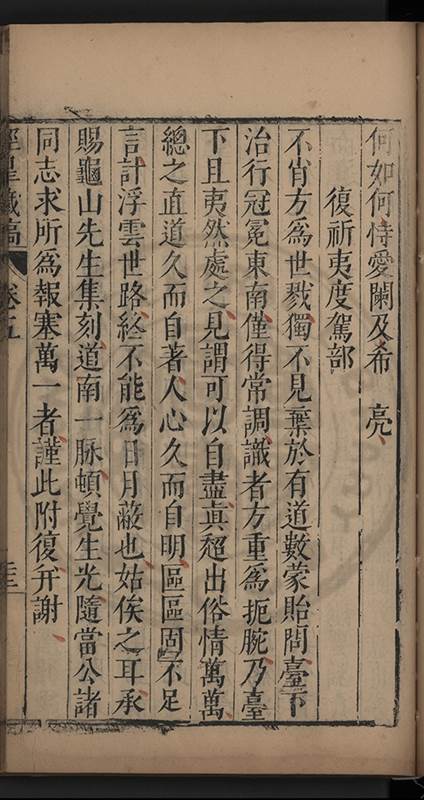 何如何恃愛闌及希亮
復祈夷度駕部
不肖方為世戮獨不見棄於有道數蒙貽問臺下
治行冠冕東南僅得常調識者方重為扼腕乃臺
下且夷然處之見謂可以自盡真超出俗情萬萬
總之直道久而自著人心久而自明區區固不足
言計浮雲世路終不能為日月蔽也姑俟之耳承
賜龜山先生集刻道南一脉頓覺生光隨當公諸
同志求所為報塞萬一者謹此附復并謝
涇臯藏稿 卷五